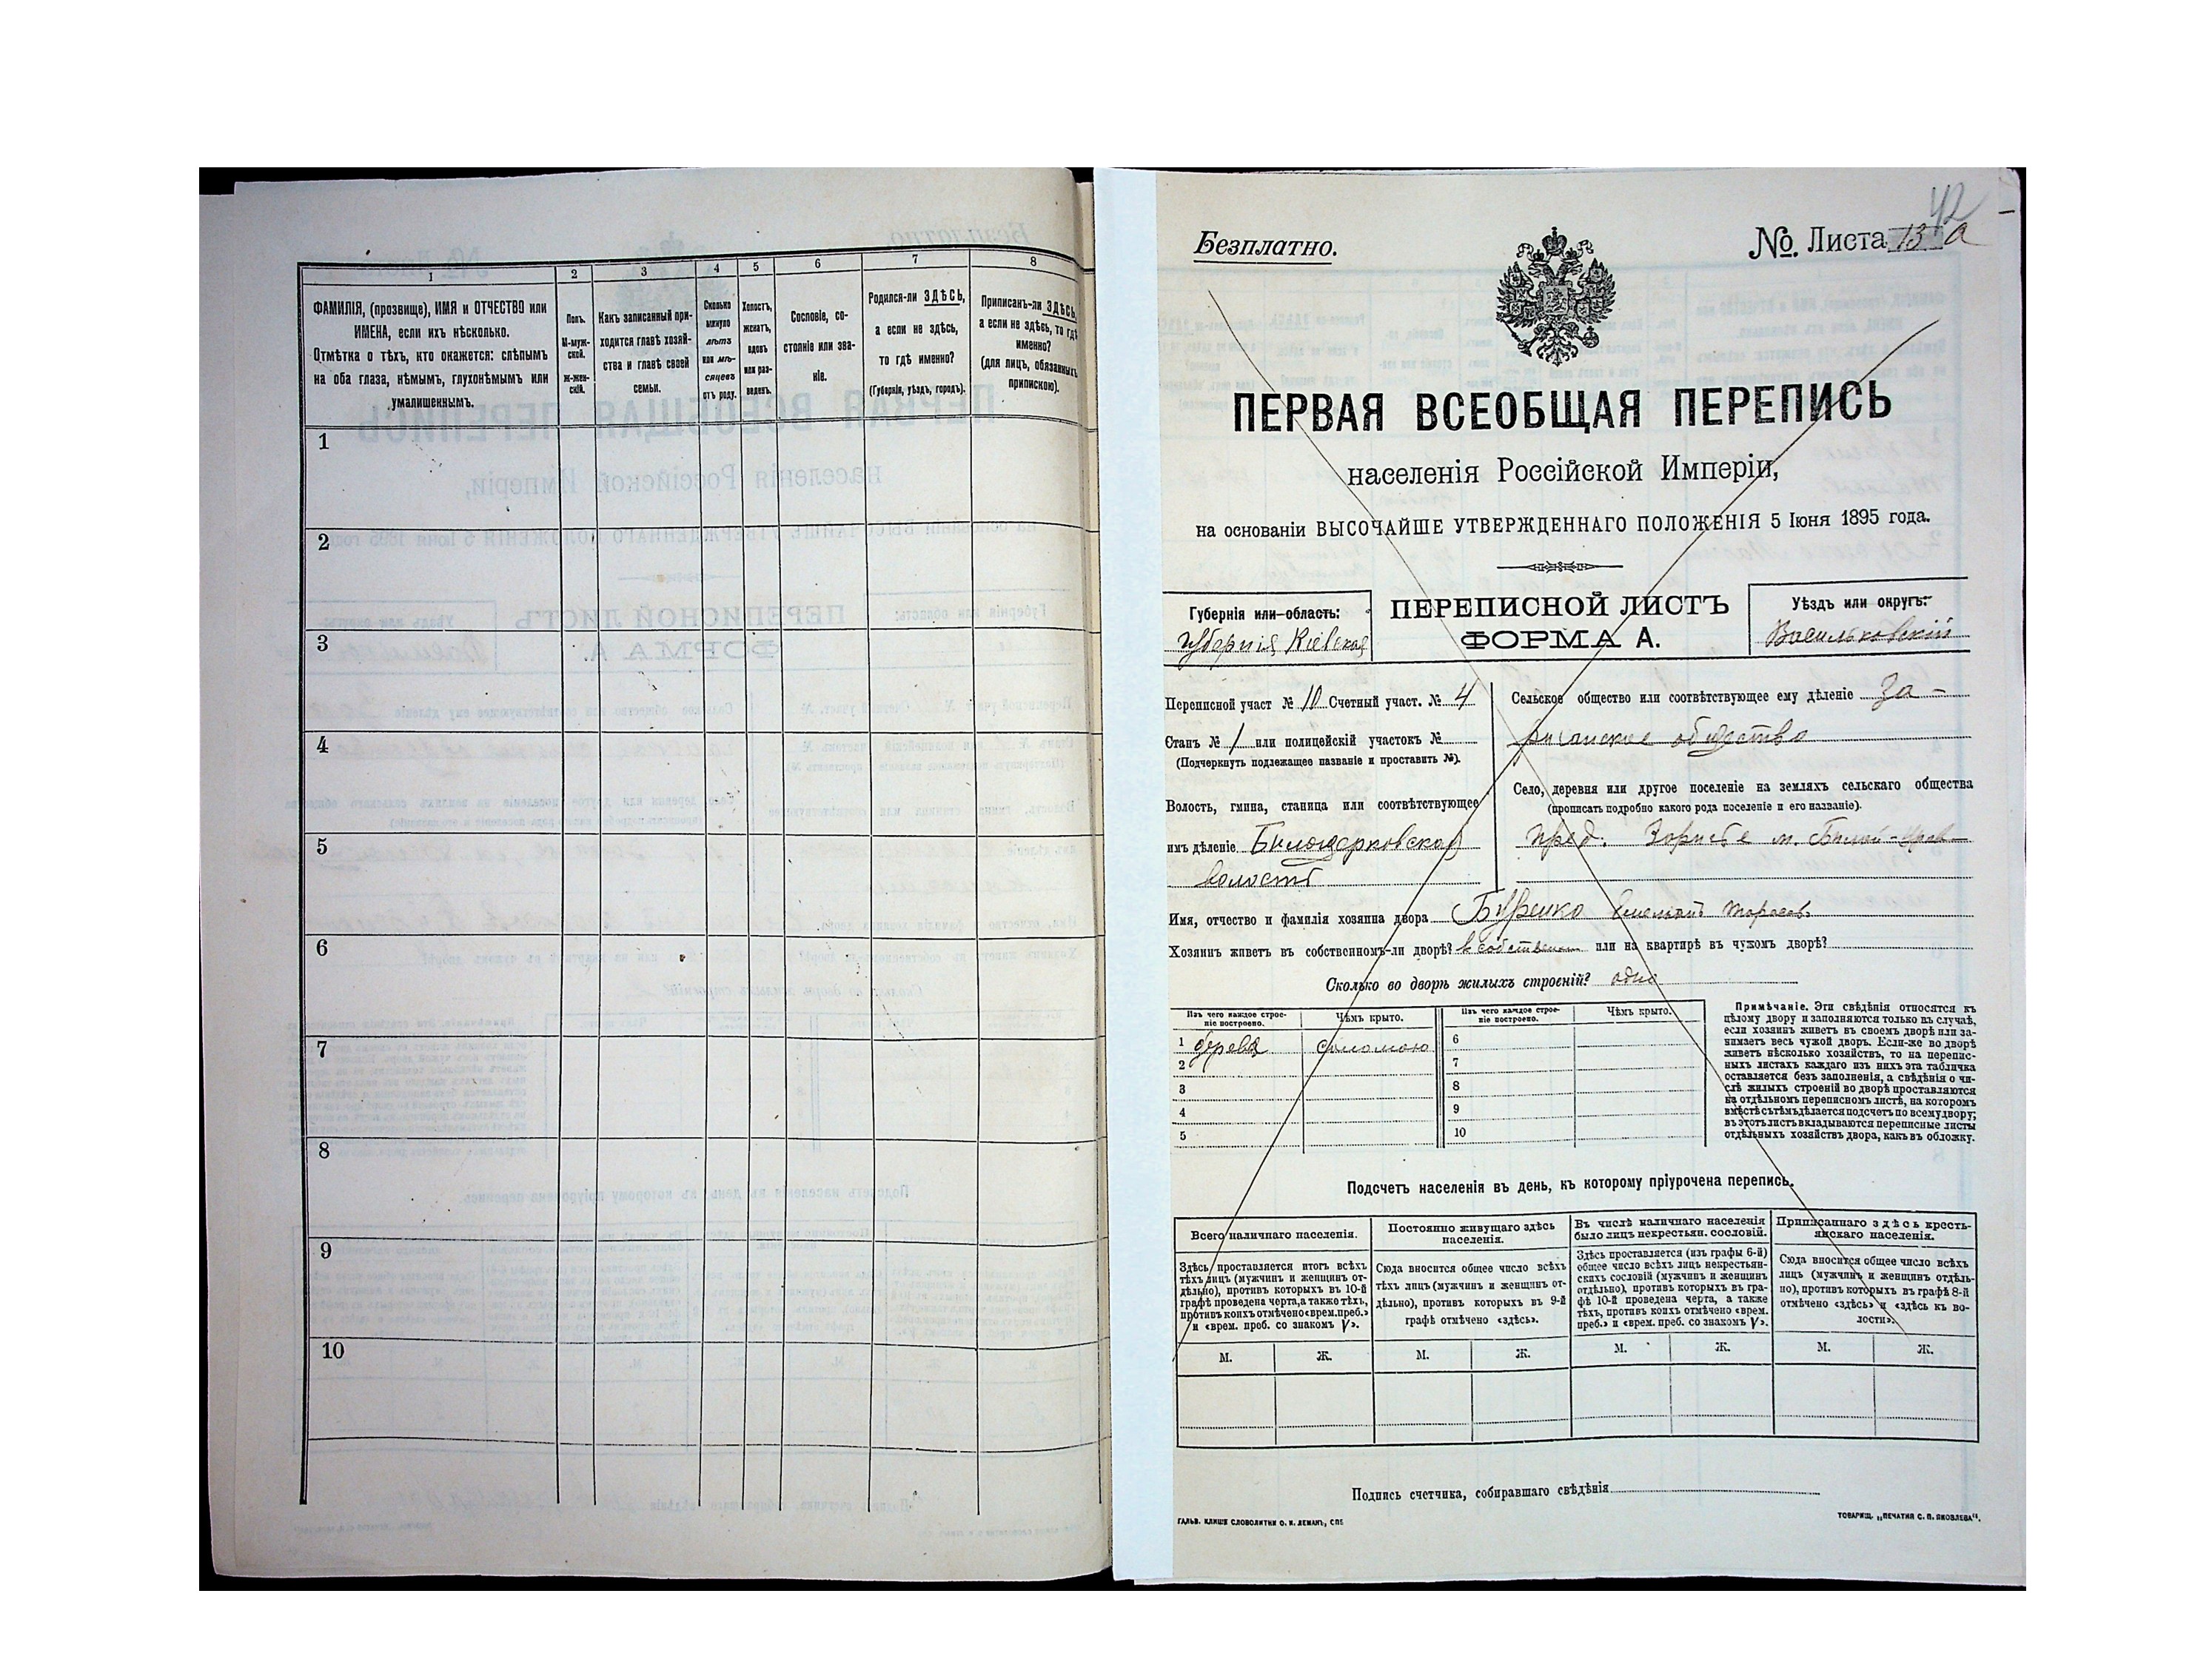 1 2 3 4 5 6 7 8
ФАМИЛІЯ, (прозвище), ИМЯ и ОТЧЕСТВО или
ИМЕНА, если ихъ нѣсколько.
Отмѣтка о тѣхъ, кто окажется: слѣпымъ
на оба глаза, нѣмымъ, глухонѣмымъ или
умалишеннымъ.
Полъ.
М-муж-
ской.
Ж-жен-
скій.
Какъ записанный при-
ходится главѣ хозяй-
ства и главѣ своей
семьи.
Сколько
минуло
лѣтъ
или мѣ-
сяцевъ
отъ роду.
Холостъ,
женатъ,
вдовъ
или раз-
веденъ.
Сословіе, со-
стояніе или зва-
ніе.
Родился-ли ЗДѢСЬ,
а если не здѣсь,
то гдѣ именно?
(Губернія, уѣздъ, городъ).
Приписанъ-ли ЗДѢСЬ,
а если не здѣсь, то гдѣ
именно?
(для лицъ, обязанныхъ
припискою).
1
2
3
4
5
6
7
8
9
10
42
Безплатно.
№ Листа 13 а
ПЕРВАЯ ВСЕОБЩАЯ ПЕРЕПИСЬ
населенія Россійской Имперіи,
на основаніи ВЫСОЧАЙШЕ УТВЕРЖДЕННАГО ПОЛОЖЕНІЯ 5 Іюня 1895 года.
Губернія или область:
Губернія Кіевская
ПЕРЕПИСНОЙ ЛИСТЪ
ФОРМА А.
Уѣздъ или округъ:
Васильковскій
Переписной участ № 10 Счетный участ. № 4
Станъ № 1 или полицейскій участокъ №
(Подчеркнуть подлежащее названіе и проставить №).
Волость, гмина, станица или соотвѣтствующее
имъ дѣленіе Бѣлоцерковская
волость
Сельское общество или соотвѣтствующее ему дѣленіе За-
общество
Село, деревня или другое поселеніе на земляхъ сельскаго общества
(прописать подробно какого рода поселеніе и его названіе).
пред. м.
Имя, отчество и фамилія хозяина двора Емельянъ Тарасовъ
Хозяинъ живетъ въ собственномъ-ли дворѣ? или на квартирѣ въ чужомъ дворѣ?
Сколько во дворѣ жилыхъ строеній? одно
Изъ чего каждое строе-
ніе построено.
Чѣмъ крыто.
Изъ чего каждое строе-
ніе построено.
Чѣмъ крыто.
1 дерева соломою 6
2 7
3 8
4 9
5 10
Примѣчаніе. Эти свѣдѣнія относятся къ
цѣлому двору и заполняются только въ случаѣ,
если хозяинъ живетъ въ своемъ дворѣ или за-
нимаетъ весь чужой дворъ. Если-же во дворѣ
живетъ нѣсколько хозяйствъ, то на перепис-
ныхъ листахъ каждаго изъ нихъ эта табличка
оставляется безъ заполненія, а свѣдѣнія о чи-
слѣ жилыхъ строеній во дворѣ проставляются
на отдѣльномъ переписномъ листѣ, на которомъ
вмѣстѣ съ тѣмъ дѣлается подсчетъ по всему двору;
въ этотъ листъ вкладываются переписные листы
отдѣльныхъ хозяйствъ двора, какъ въ обложку.
Подсчетъ населенія въ день, къ которому пріурочена перепись.
Всего наличнаго населенія.
Постоянно живущаго здѣсь
населенія.
Въ числѣ наличнаго населенія
было лицъ некрестьян. сословій.
Приписаннаго здѣсь кресть-
янскаго населенія.
Здѣсь проставляется итогъ всѣхъ
тѣхъ лицъ (мужчинъ и женщинъ от-
дѣльно), противъ которыхъ въ 10-й
графѣ проведена черта, а также тѣхъ,
противъ коихъ отмѣчено «врем. преб.»
и «врем. преб. со знакомъ V».
Сюда вносится общее число всѣхъ
тѣхъ лицъ (мужчинъ и женщинъ от-
дѣльно), противъ которыхъ въ 9-й
графѣ отмѣчено «здѣсь».
Здѣсь проставляется (изъ графы 6-й)
общее число всѣхъ лицъ некрестьян-
скихъ сословій (мужчинъ и женщинъ
отдѣльно), противъ которыхъ въ гра-
фѣ 10-й проведена черта, а также
тѣхъ, противъ коихъ отмѣчено «врем.
преб.» и «врем. преб. со знакомъ V».
Сюда вносится общее число всѣхъ
лицъ (мужчинъ и женщинъ отдѣль-
но), противъ которыхъ въ графѣ 8-й
отмѣчено «здѣсь» и «здѣсь къ во-
лости».
М. Ж. М. Ж. М. Ж. М. Ж.
Подпись счетчика, собиравшаго свѣдѣнія
ГАЛЬВ. КЛИШЕ СЛОВОЛИТНИ О. И. ЛЕМАНЪ, СПБ
ТОВАРИЩ. „ПЕЧАТНЯ С. П. ЯКОВЛЕВА“.